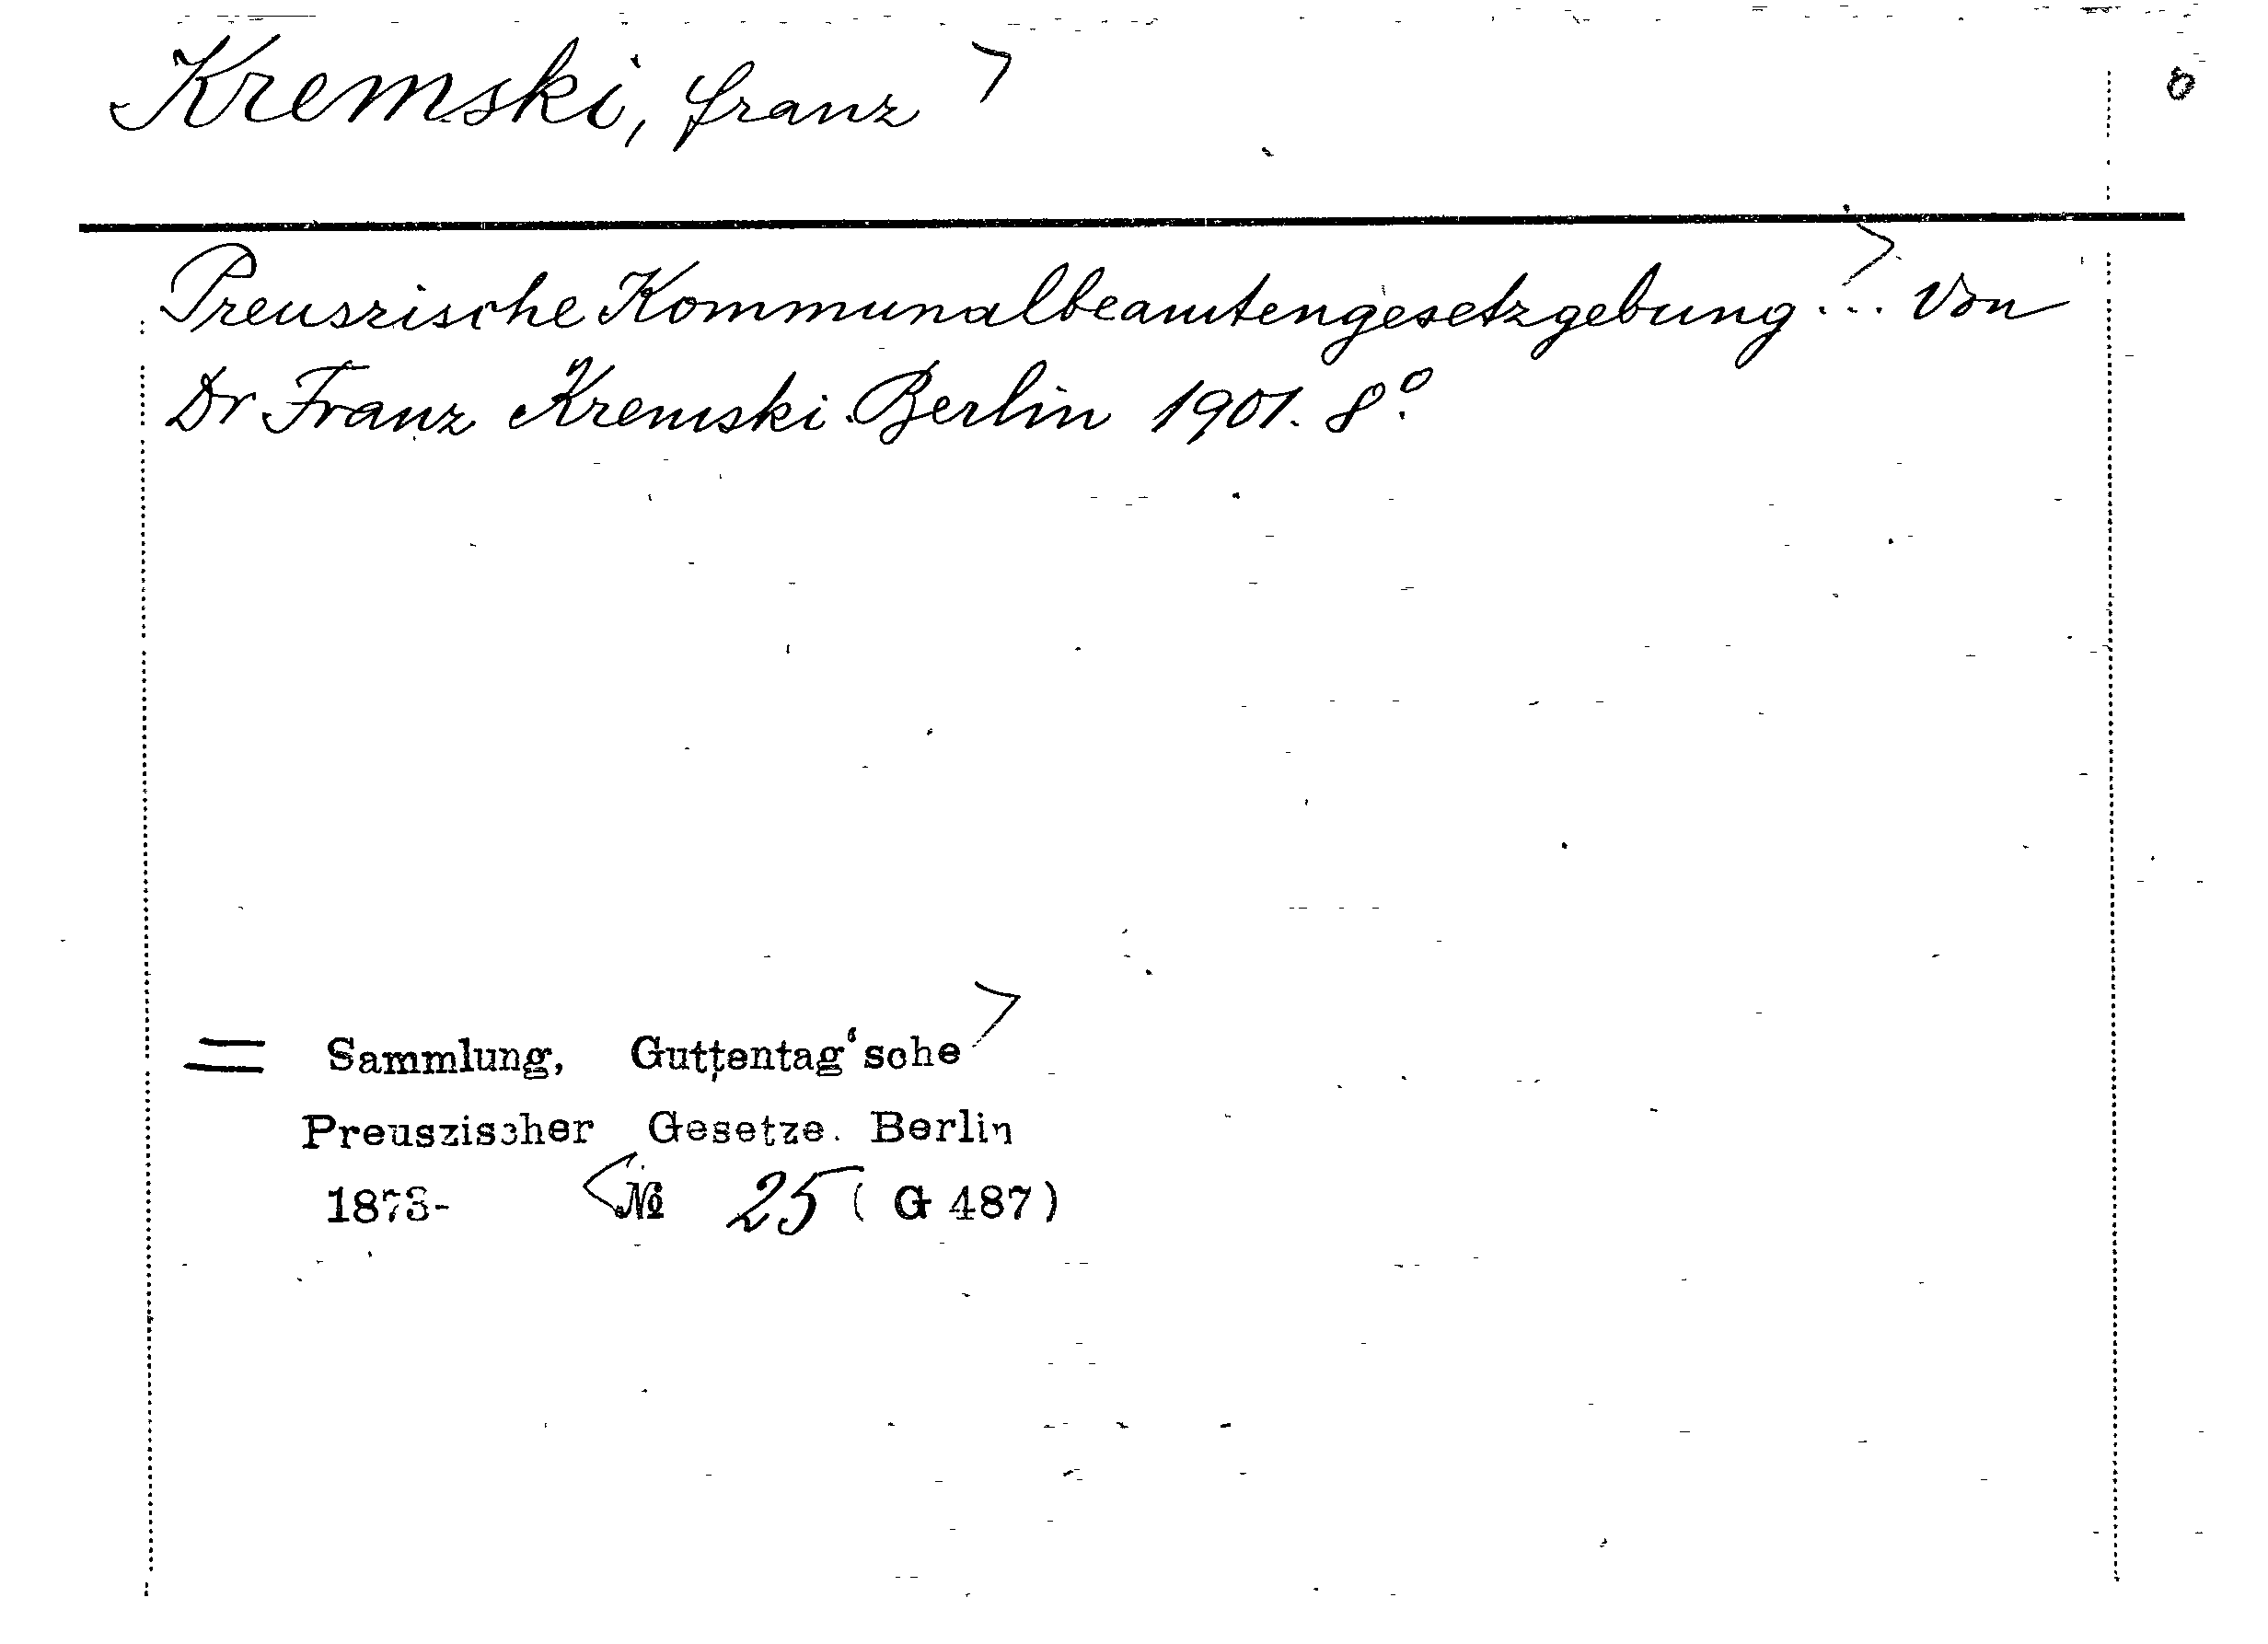 Kremski, Franz
Preuszische Kommunalbeamtengesetzgebung ... Von
Dr Franz Kremski. Berlin 1901. 8°.
= Sammlung, Guttentag'sche
Preuszischer Gesetze. Berlin
1873- № 25 (G 487)